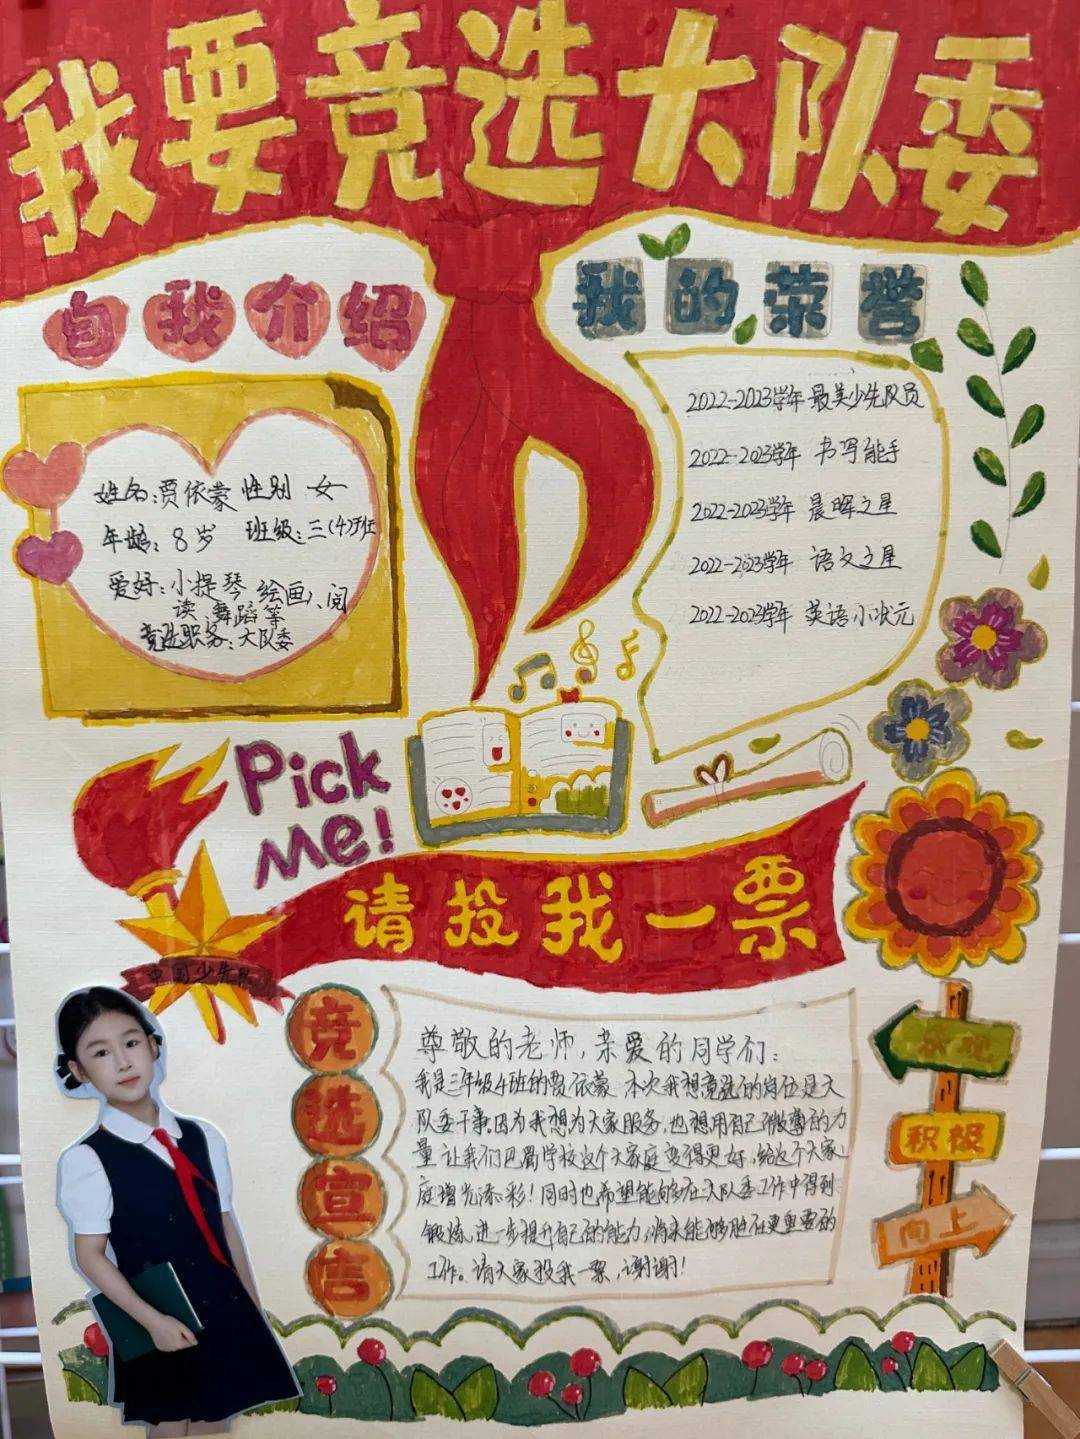 我要竞选大队委
自我介绍
姓名:贾依蒙 性别 女
年龄:8岁 班级:三(4)班
爱好:小提琴、绘画、阅
读、舞蹈等
竞选职务:大队委
我的荣誉
2022-2023学年 最美少先队员
2022-2023学年 书写能手
2022-2023学年 晨晖之星
2022-2023学年 语文之星
2022-2023学年 英语小状元
Pick
Me!
请投我一票
中国少先队
竞选宣言
尊敬的老师,亲爱的同学们:
我是三年级4班的贾依蒙 本次我想竞选的岗位是大
队委干事,因为我想为大家服务,也想用自己微薄的力
量 让我们巴蜀学校这个大家庭变得更好,给这个大家
庭增光添彩!同时也希望能够在大队委工作中得到
锻炼,进一步提升自己的能力,将来能够胜任更重要的
工作。请大家投我一票,谢谢!
乐观
积极
向上